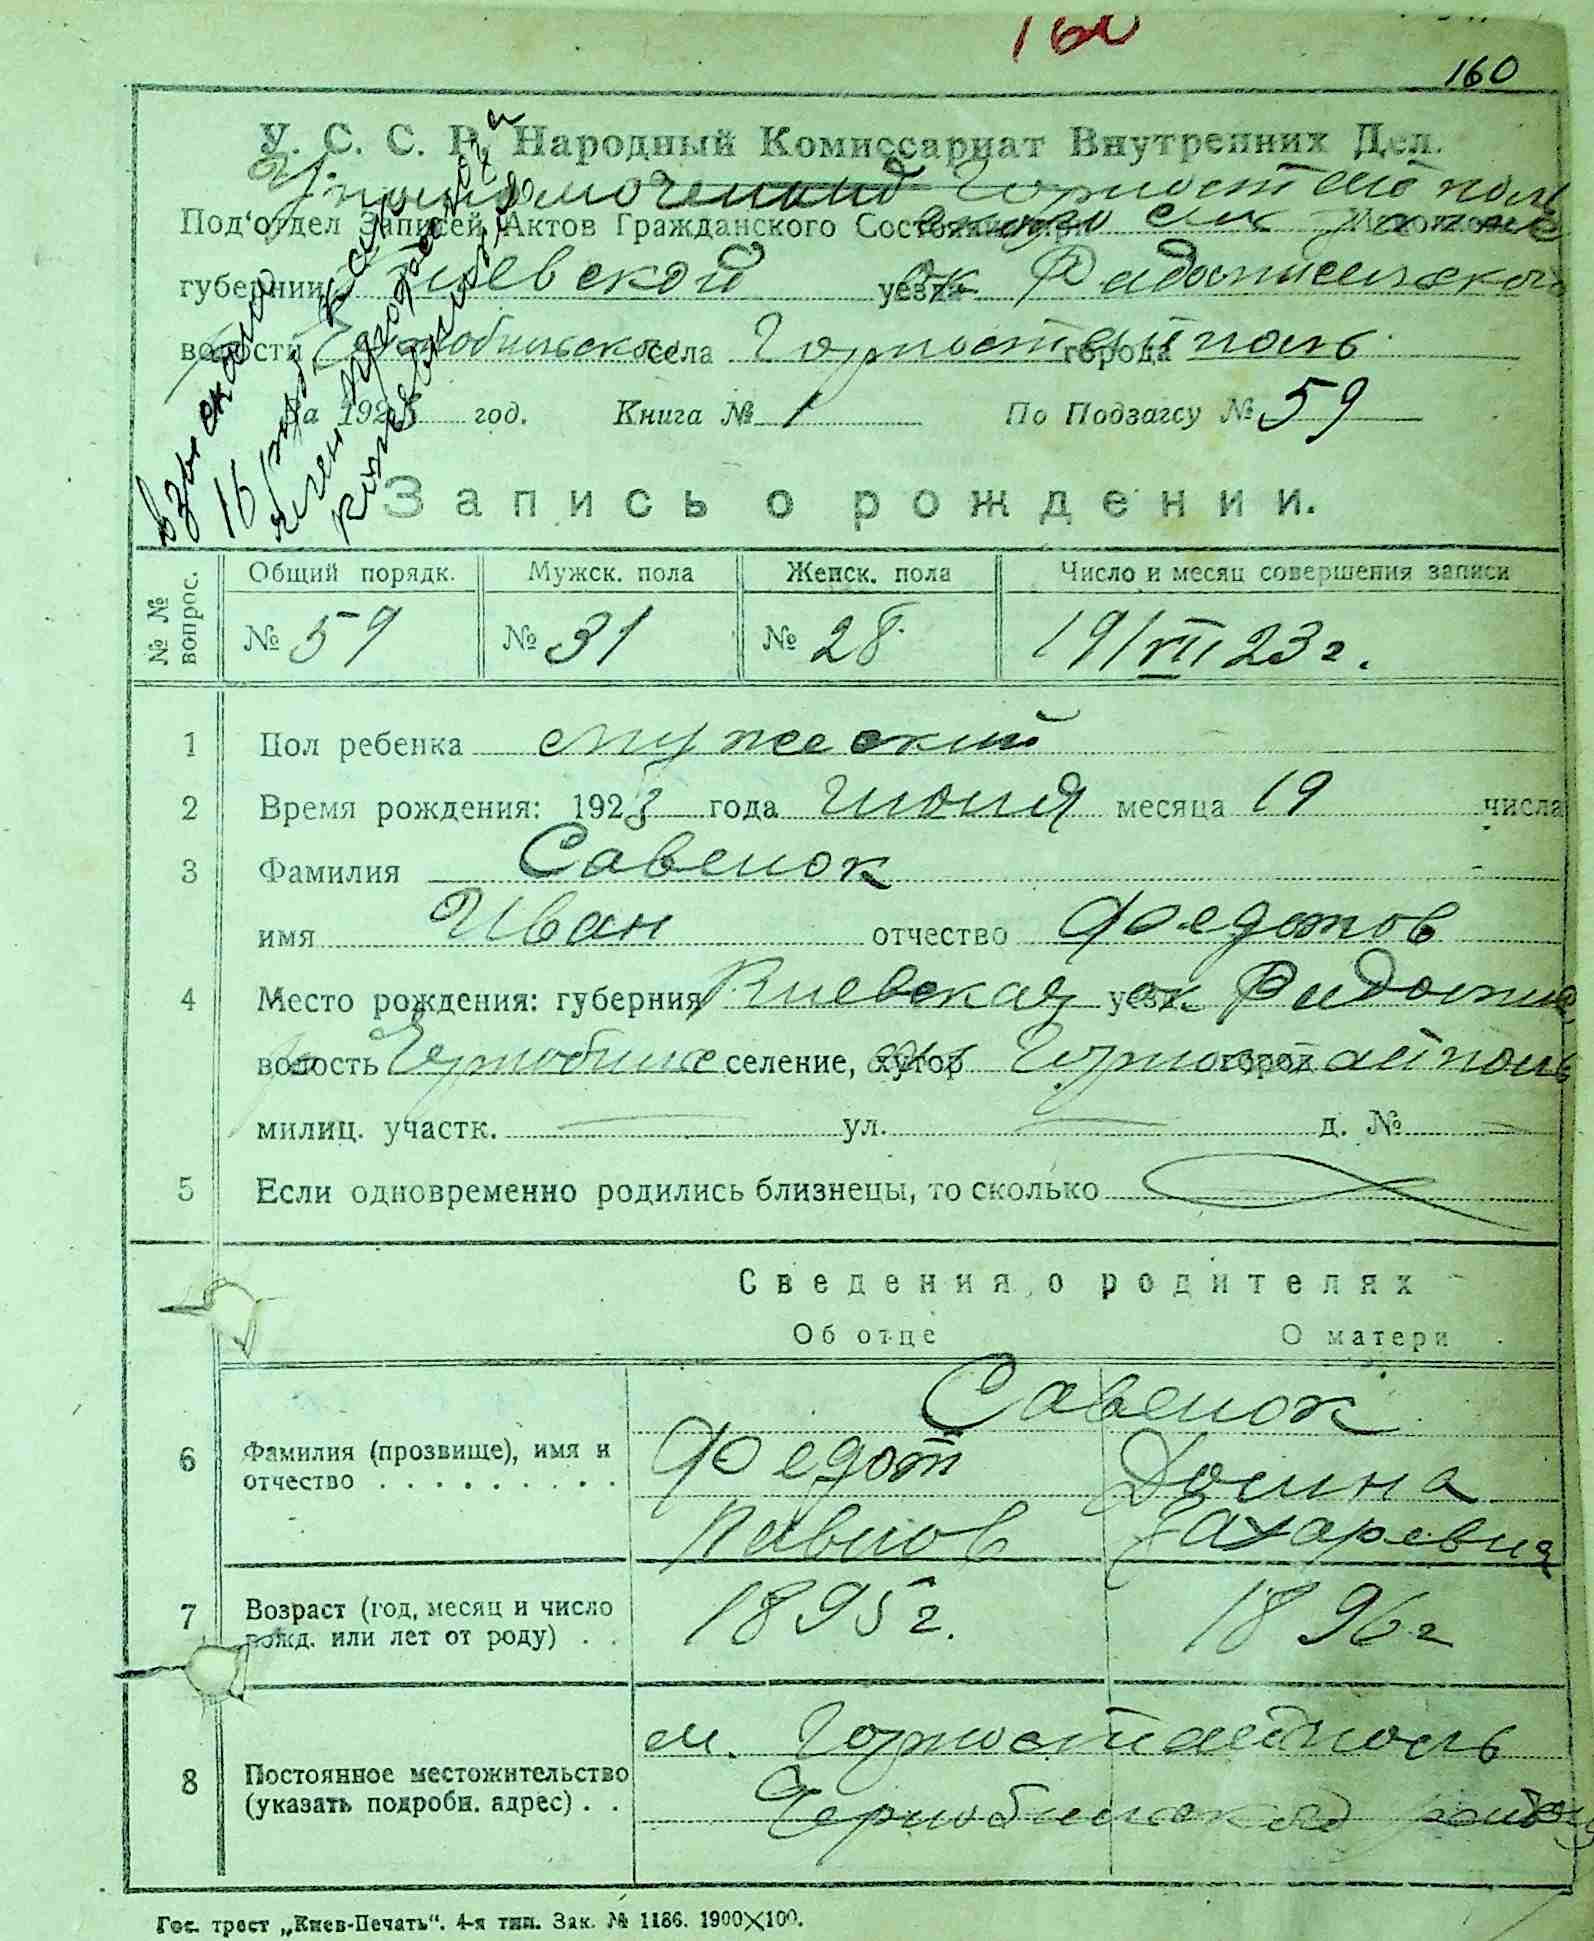 160
160
У. С. С. Р. Народный Комиссариат Внутренних Дел.
Под'отдел Записей Актов Гражданского Состояния при
губернии Киевской уезда ок Радомисльского
волости Чернобильского села города Горностайполь
За 1923 год. Книга № 1 По Подзагсу № 59
взыскано
16
Запись о рождении.
№ № вопрос. Общий порядк. Мужск. пола Женск. пола Число и месяц совершения записи
№ 59 № 31 № 28 19/VII 23 г.
1 Пол ребенка мужеский
2 Время рождения: 1923 года июня месяца 19 числа
3 Фамилия Савенок
имя Иван отчество Федотов
4 Место рождения: губерния Киевская уезд ок. Радомисл
волость Чернобильс селение, хутор город Горностайполь
милиц. участк. ул. д. №
5 Если одновременно родились близнецы, то сколько
Сведения о родителях
Об отце О матери
Савенок
6 Фамилия (прозвище), имя и отчество Федот Домна
Павлов Захаревна
7 Возраст (год, месяц и число рожд. или лет от роду) 1895 г. 1896 г
8 Постоянное местожительство (указать подробн. адрес) м. Горностайполь
Чернобильского района
Гос. трест „Киев-Печать“. 4-я тип. Зак. № 1186. 1900×100.